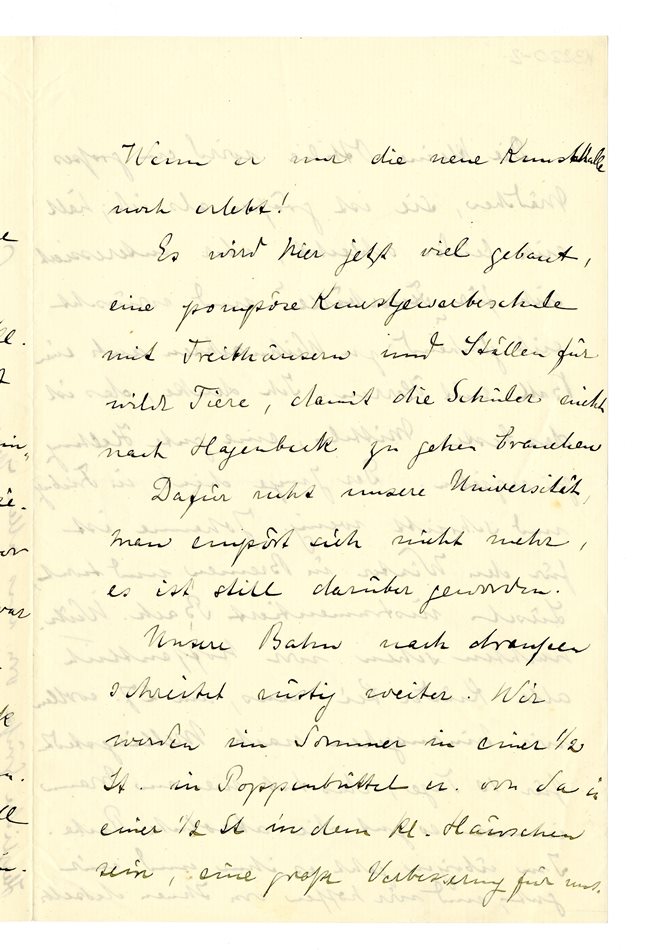 Wenn er nur die neue Kunsthalle
noch erlebt!
Es wird hier jetzt viel gebaut,
eine pompöse Kunstgewerbeschule
mit Treibhäusern und Ställen für
wilde Tiere, damit die Schüler nicht
nach Hagenbeck zu gehen brauchen
Dafür ruht unsere Universität,
man empört sich nicht mehr,
es ist still darüber geworden.
Unsere Bahn nach draußen
schreitet rüstig weiter. Wir
werden im Sommer in einer 1/2
St. in Poppenbüttel u. von da in
einer 1/2 St in dem kl. Häuschen
sein, eine große Verbesserung für uns.